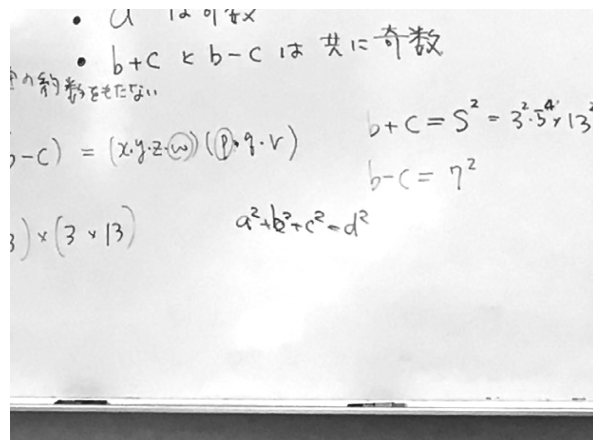 • a は奇数
• b+c と b-c は 共に 奇数
の約数をもたない
b-c) = (x·y·z·w)(p·q·r)
b+c = S² = 3²·5⁴×13²
b-c = η²
3)×(3×13)
a²+b²+c²=d²